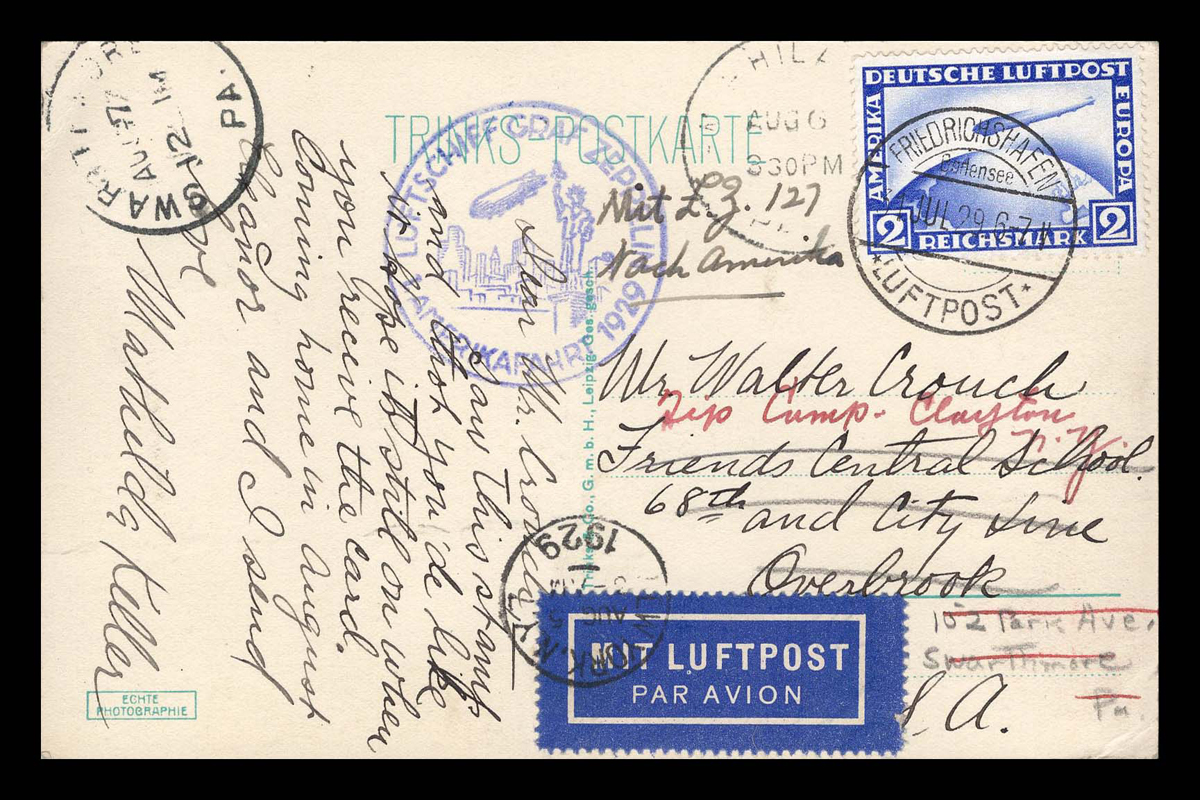 TRINKS-POSTKARTE
DEUTSCHE LUFTPOST
AMERIKA
EUROPA
2 REICHSMARK 2
FRIEDRICHSHAFEN
Bodensee
JUL 29 6-7
* LUFTPOST *
AUG 6
830 PM
SWARTHMORE
AUG 7
12 M
PA.
LUFTSCHIFF GRAF ZEPPELIN
AMERIKAFAHRT 1929
Mit L.Z. 127
Nach Amerika
Dear Mr. Crouch
I saw this stamp
and thot you'd like
it. Hope it still on when
you receive the card.
Coming home in August
Eleanor and I send
love
Mathilda Keller
Mr Walter Crouch
Camp - Clayton
N.Y.
Friends Central School
68th and City Line
Overbrook
102 Park Ave.
Swarthmore
Pa.
S. A.
Trinks & Co., G.m.b.H., Leipzig. Ges. gesch.
YORK, N.Y.
AUG
5
1929
MIT LUFTPOST
PAR AVION
ECHTE
PHOTOGRAPHIE